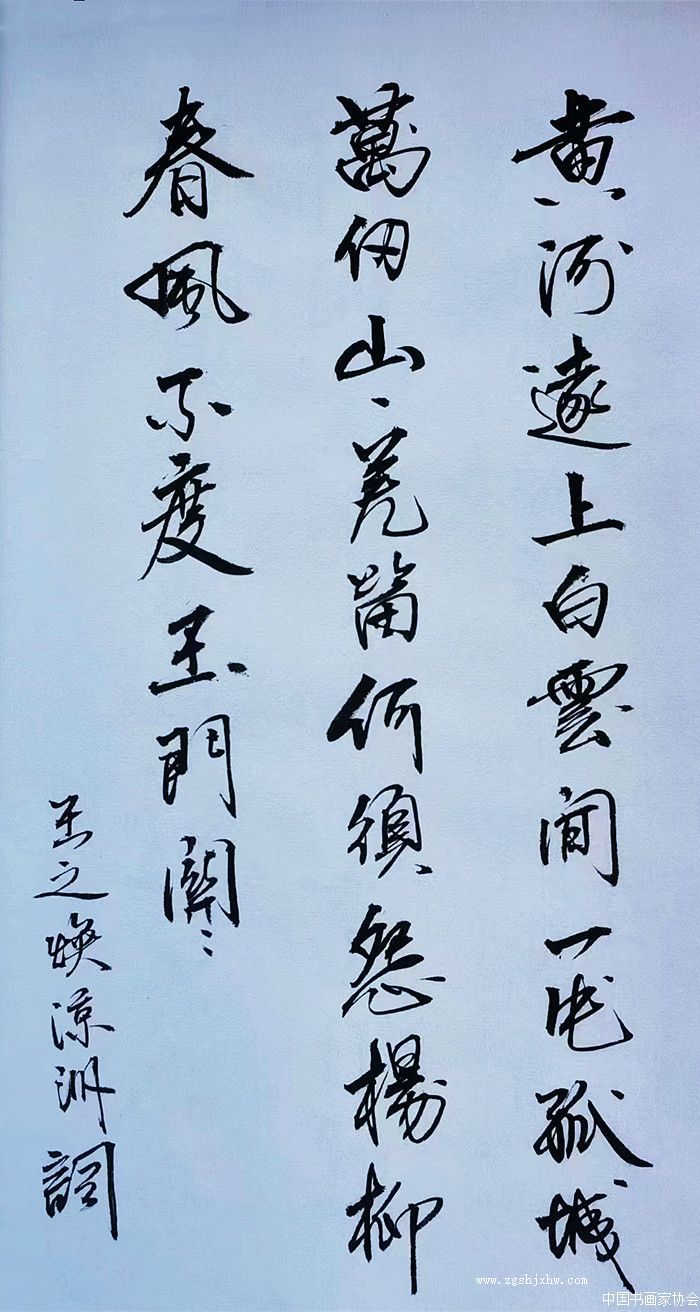 黄河遠上白雲间一片孤城
萬仞山羌笛何須怨楊柳
春風不度玉門關
王之焕涼州詞
www.zgshjxhw.com
中国书画家协会